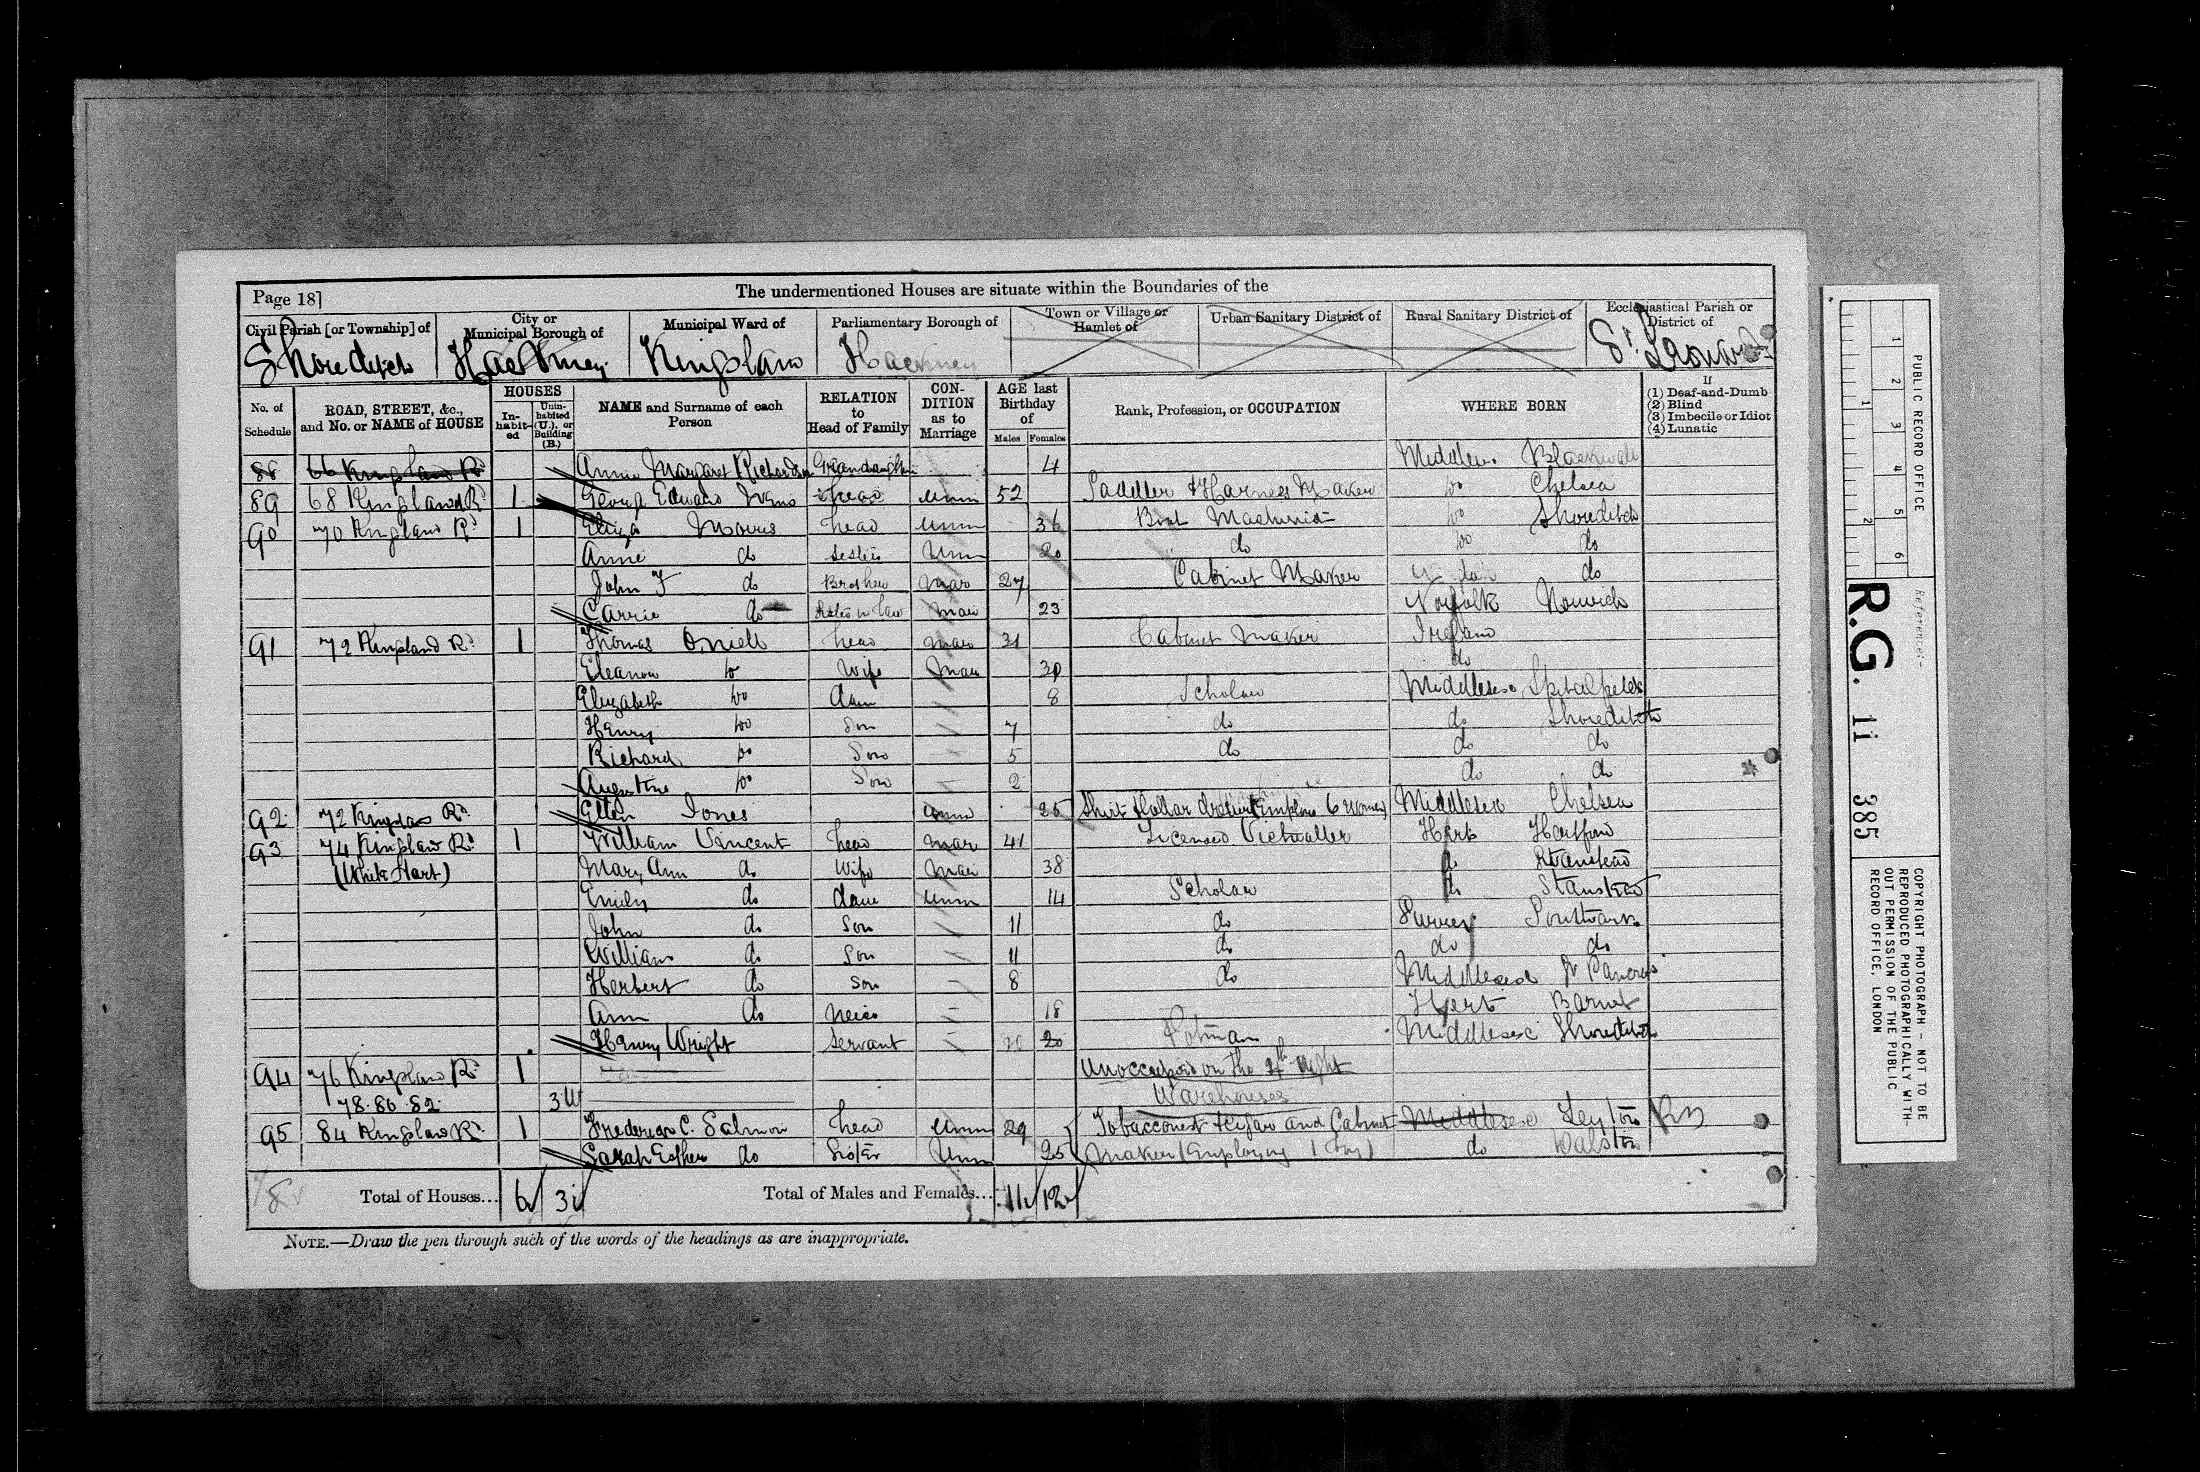 Page 18]
The undermentioned Houses are situate within the Boundaries of the
Civil Parish [or Township] of
City or Municipal Borough of
Municipal Ward of
Parliamentary Borough of
Town or Village or Hamlet of
Urban Sanitary District of
Rural Sanitary District of
Ecclesiastical Parish or District of
Shoreditch Hackney Kingsland Hackney St Leonards
No. of Schedule
ROAD, STREET, &c., and No. or NAME of HOUSE
HOUSES
In-habit-ed
Unin-habited (U.), or Building (B.)
NAME and Surname of each Person
RELATION to Head of Family
CON-DITION as to Marriage
AGE last Birthday of
Males Females
Rank, Profession, or OCCUPATION
WHERE BORN
If
(1) Deaf-and-Dumb
(2) Blind
(3) Imbecile or Idiot
(4) Lunatic
88 66 Kingsland Rd Annie Margaret Richardson Grandaughter 4 Middlesex Blackwall
89 68 Kingsland Rd 1 George Edward Ivens head Unm 52 Saddler & Harness Maker do Chelsea
90 70 Kingsland Rd 1 Eliza Morris head Unm 36 Boot Machinist do Shoreditch
Annie do sister Unm 20 do do do
John F do Brother mar 27 Cabinet Maker do
Carrie do Sister in law mar 23 Norfolk Norwich
91 72 Kingsland Rd 1 Thomas Oniell head mar 31 Cabinet Maker Ireland
Eleanor do Wife mar 30 do
Elizabeth do daur 8 Scholar Middlesex Spitalfields
Henry do Son 7 do do Shoreditch
Richard do Son 5 do do do
Augustine do Son 2 do do
92 72 Kingsland Rd Ellen Jones Unm 25 Shirt & Collar dresser (Employs 6 women) Middlesex Chelsea
93 74 Kingsland Rd 1 William Vincent head mar 41 Licensed Victualler Herts Hertford
(White Hart) Mary Ann do Wife mar 38 do Stanstead
Emily do daur Unm 14 Scholar do Stanstead
John do Son 11 do Surrey Southwark
William do Son 11 do do do
Herbert do Son 8 do Middlesex St Pancras
Ann do neice 18 Herts Barnet
Henry Wright Servant 20 Potman Middlesex Shoreditch
94 76 Kingsland Rd 1 Unoccupied on the night
78. 80. 82. 3 U Warehouses
95 84 Kingsland Rd 1 Frederick C. Salmon head Unm 29 Tobacconist & Cigar and Cabinet Middlesex Leyton
Sarah Esther do Sister Unm 25 Maker (Employing 1 boy) do Dalston
Total of Houses... 6 3 Total of Males and Females... 11 12
NOTE.—Draw the pen through such of the words of the headings as are inappropriate.
PUBLIC RECORD OFFICE
1 2 3 4 5 6
1 2
Reference:-
R.G. 11 385
COPYRIGHT PHOTOGRAPH - NOT TO BE REPRODUCED PHOTOGRAPHICALLY WITH-OUT PERMISSION OF THE PUBLIC RECORD OFFICE, LONDON